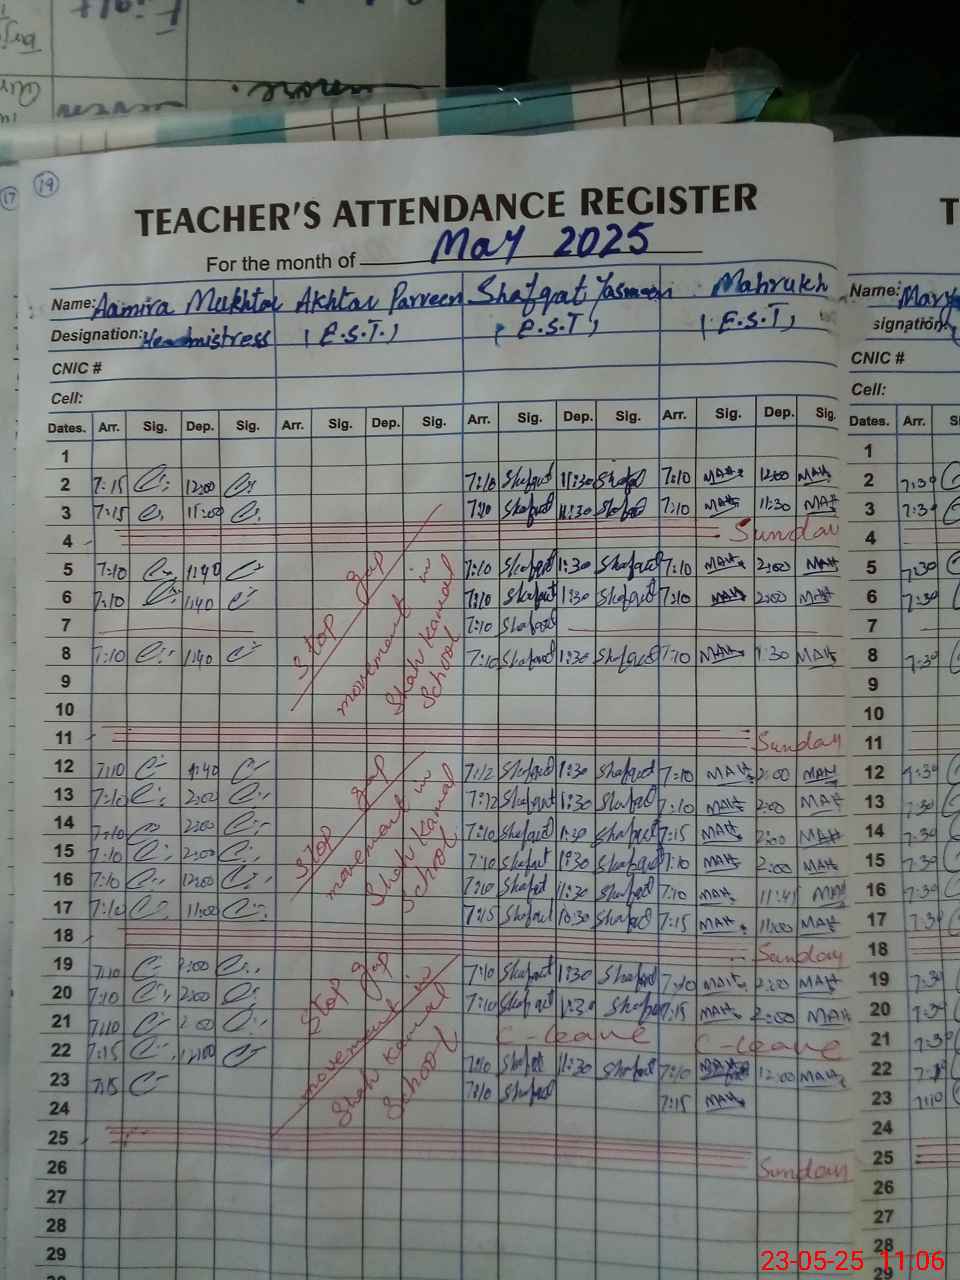 19
17
TEACHER'S ATTENDANCE REGISTER
For the month of May 2025
Name: Aamira Mukhtar Akhtar Parveen Shafqat Yasmeen Mahrukh Name:
Designation: Headmistress (E.S.T) (E.S.T) (E.S.T) signation:
CNIC # CNIC #
Cell: Cell:
Dates. Arr. Sig. Dep. Sig. Arr. Sig. Dep. Sig. Arr. Sig. Dep. Sig. Arr. Sig. Dep. Sig. Dates. Arr.
1 1
2 7:15 12:00 7:10 Shafqat 11:30 Shafqat 7:10 MAH 12:00 MAH 2 7:30
3 7:15 11:00 7:10 Shafqat 11:30 Shafqat 7:10 MAH 11:30 MAH 3 7:30
4 Sunday 4
5 7:10 1:40 7:10 Shafqat 1:30 Shafqat 7:10 MAH 2:00 MAH 5 7:30
6 7:10 1:40 7:10 Shafqat 1:30 Shafqat 7:10 MAH 2:00 MAH 6 7:30
7 7:10 Shafqat 7
8 7:10 1:40 7:10 Shafqat 1:30 Shafqat 7:10 MAH 1:30 MAH 8 7:30
Stop gap
movement in
Shah Kamal
School
9 9
10 10
11 Sunday 11
12 7:10 1:40 7:12 Shafqat 1:30 Shafqat 7:10 MAH 2:00 MAH 12 7:30
13 7:10 2:00 7:12 Shafqat 1:30 Shafqat 7:10 MAH 2:00 MAH 13 7:30
14 7:10 2:00 7:10 Shafqat 1:30 Shafqat 7:15 MAH 2:00 MAH 14 7:30
15 7:10 2:00 7:10 Shafqat 1:30 Shafqat 7:10 MAH 2:00 MAH 15 7:30
16 7:10 12:00 7:10 Shafqat 11:30 Shafqat 7:10 MAH 11:45 MAH 16 7:30
17 7:10 11:00 7:15 Shafqat 10:30 Shafqat 7:15 MAH 11:00 MAH 17 7:30
Stop gap
movement in
Shah Kamal
School
18 Sunday 18
19 7:10 2:00 7:10 Shafqat 1:30 Shafqat 7:10 MAH 2:00 MAH 19 7:30
20 7:10 2:00 7:10 Shafqat 1:30 Shafqat 7:15 MAH 2:00 MAH 20 7:30
21 7:10 2:00 C-leave C-leave 21 7:30
22 7:15 12:00 7:10 Shafqat 11:30 Shafqat 7:10 MAH 12:00 MAH 22
23 7:15 7:10 Shafqat 7:15 MAH 23 7:10
Stop gap
movement in
Shah Kamal
School
24 24
25 Sunday 25
26 26
27 27
28 28
29 29
23-05-25 11:06